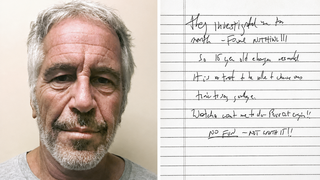 They investigated me for
month — Found NOTHING!!!
So 15 year old charges resulted
It is a treat to be able to choose one's
time to say goodbye.
Watcha want me to do — Bust out cryin!!
NO FUN — NOT WORTH IT!!